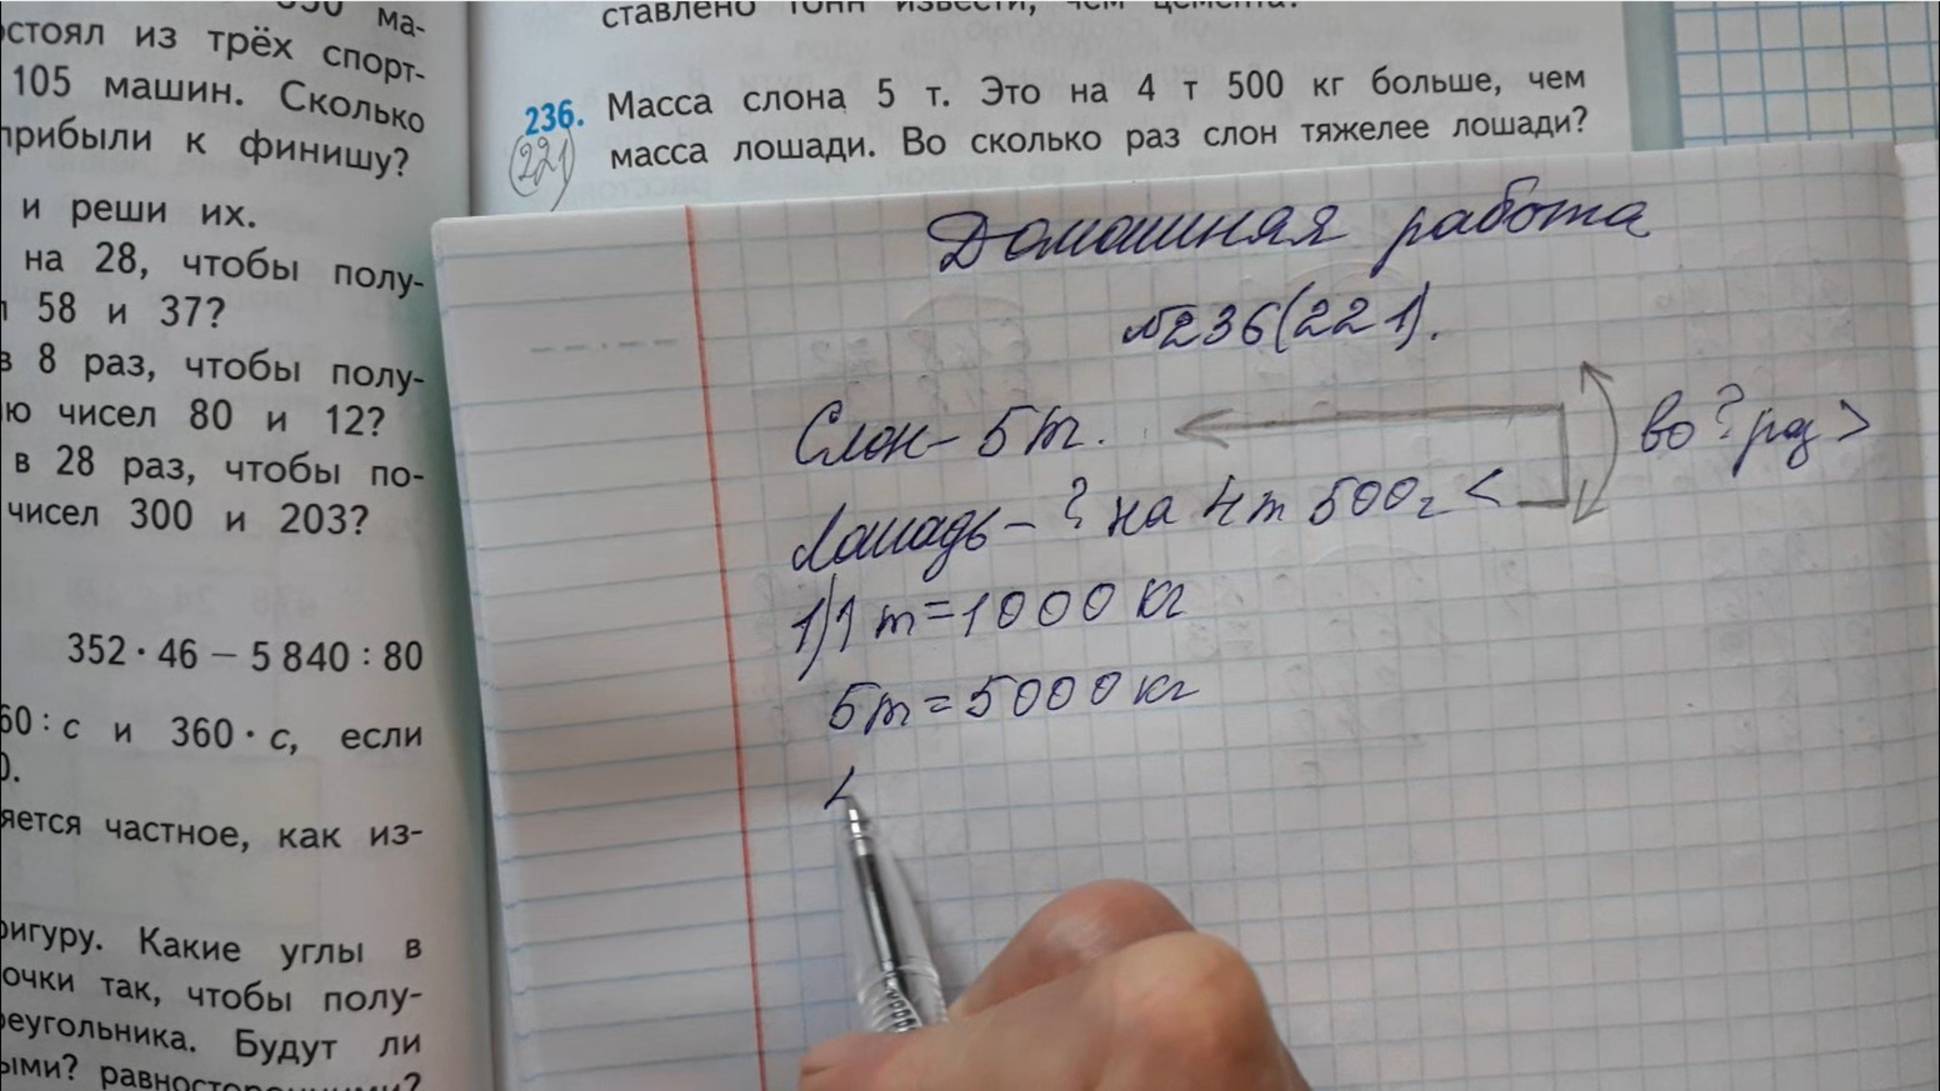 ма-
остоял из трёх спорт-
105 машин. Сколько
прибыли к финишу?
и реши их.
на 28, чтобы полу-
58 и 37?
в 8 раз, чтобы полу-
ю чисел 80 и 12?
в 28 раз, чтобы по-
чисел 300 и 203?
352 · 46 – 5 840 : 80
60 : с и 360 · с, если
0.
яется частное, как из-
фигуру. Какие углы в
очки так, чтобы полу-
реугольника. Будут ли
ыми? равносторонними?
ставлено тонн извести, чем цемента?
236. Масса слона 5 т. Это на 4 т 500 кг больше, чем
(221) масса лошади. Во сколько раз слон тяжелее лошади?
Домашняя работа
№236(221).
Слон – 5т. во ? раз >
Лошадь – ? на 4т 500г <
1) 1 т = 1000 кг
5т = 5000 кг